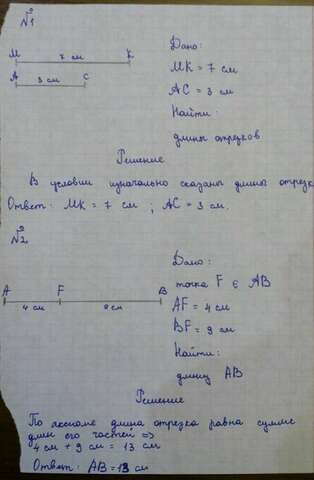 №1
M 7 см K
A 3 см C
Дано:
MK = 7 см
AC = 3 см
Найти:
длины отрезков
Решение
В условии изначально сказаны длины отрезк
Ответ: MK = 7 см ; AC = 3 см.
№2
A F B
4 см 9 см
Дано:
точка F ∈ AB
AF = 4 см
BF = 9 см
Найти:
длину AB
Решение
По аксиоме длина отрезка равна сумме
длин его частей =>
4 см + 9 см = 13 см
Ответ: AB = 13 см